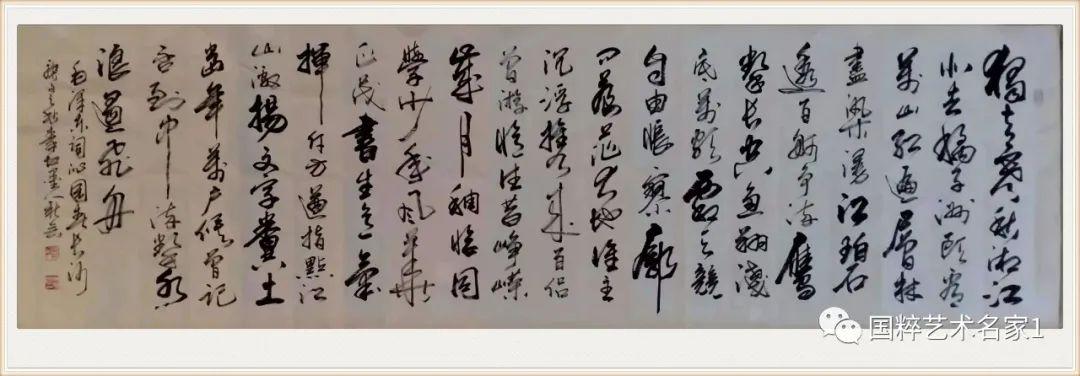 獨立寒秋湘江
北去橘子洲頭看
萬山紅遍層林
盡染漫江碧
透百舸争流鷹
擊長空魚翔淺
底萬類霜天競
自由悵寥廓
問蒼茫大地誰主
沉浮攜來百侣
曾游憶往昔崢嶸
歲月稠恰同
學少年風華
正茂書生意氣
揮斥方遒指點江
山激揚文字糞土
當年萬户侯曾記
否到中流擊水
浪遏飛舟
毛澤東詞沁園春長沙
国粹艺术名家1